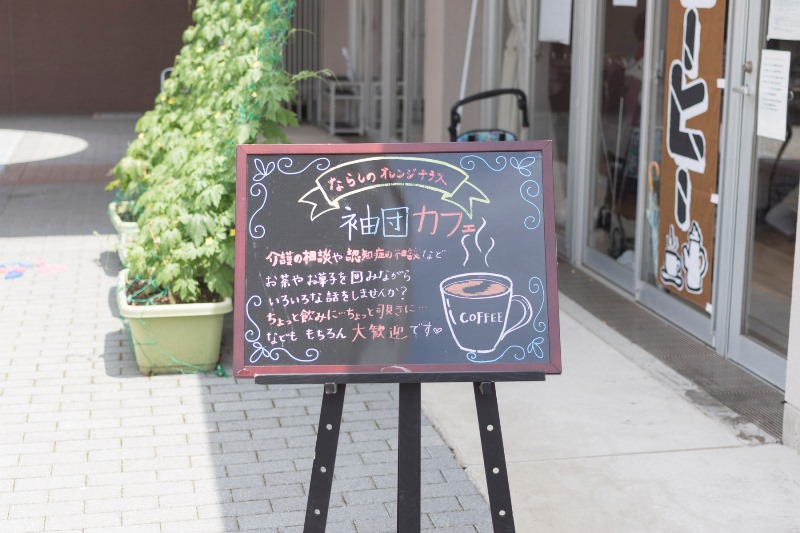 ならしの オレンジテラス
袖団カフェ
介護の相談や認知症の相談など
お茶やお菓子を囲みながら
いろいろな話をしませんか?
ちょっと飲みに…ちょっと覗きに…
なども もちろん 大歓迎です♡
COFFEE